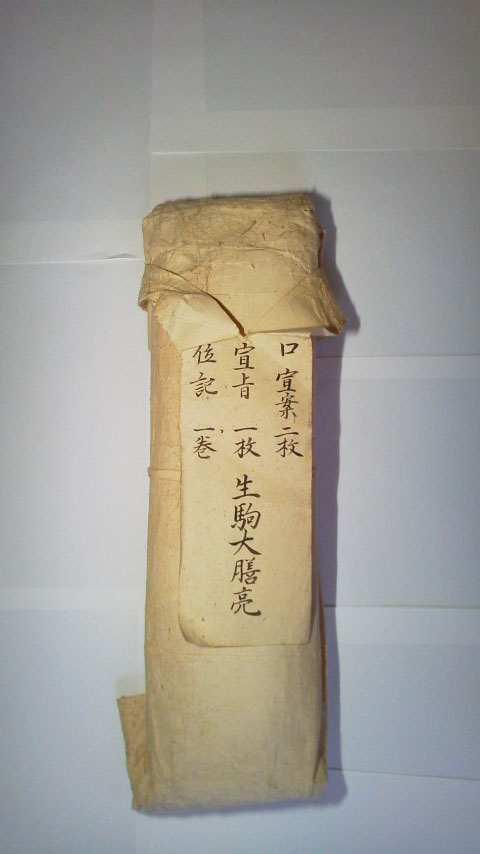 口宣案二枚
宣旨 一枚 生駒大膳亮
位記 一巻